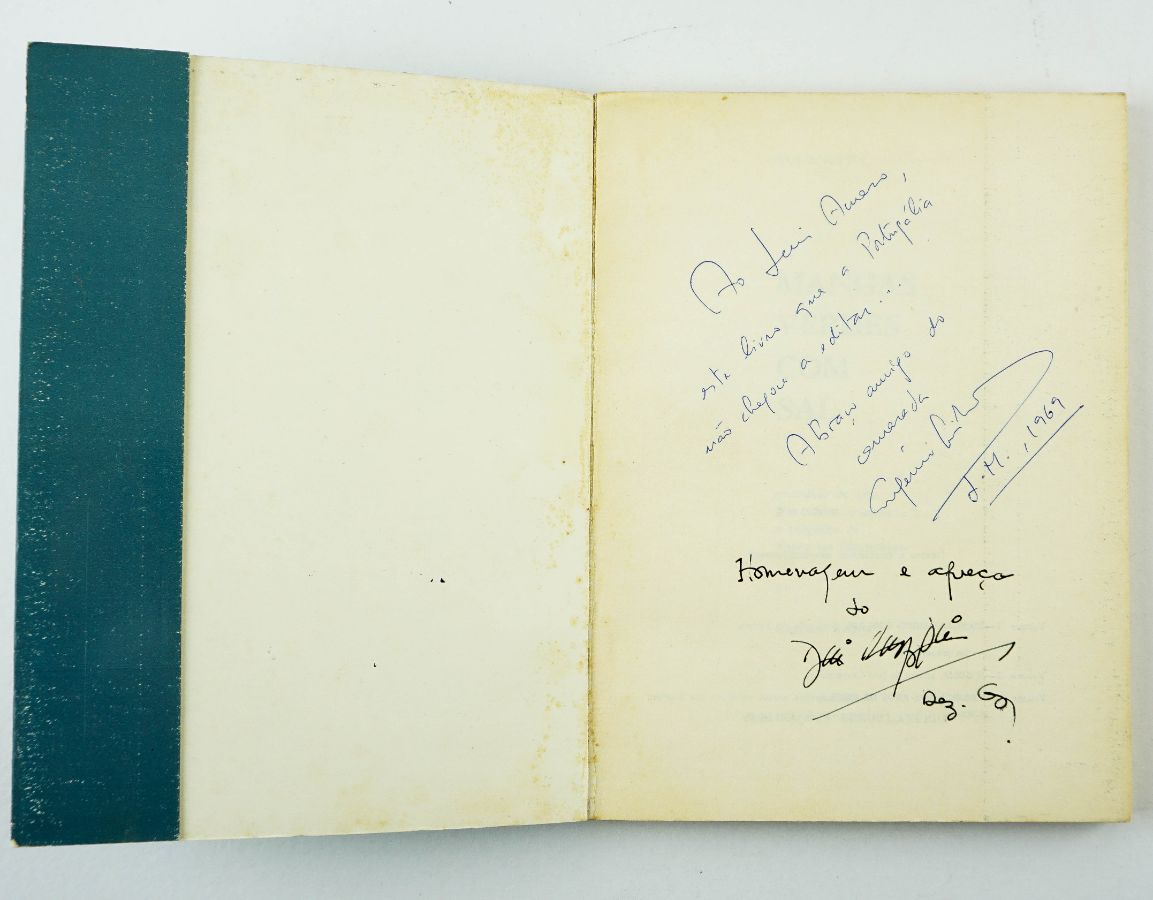 Ao Luis Amaro,
este livro que a Portugália
não chegou a editar...
Abraço amigo do
camarada
Eugénio
L.M., 1969
Homenagem e apreço
do
Dez. 69